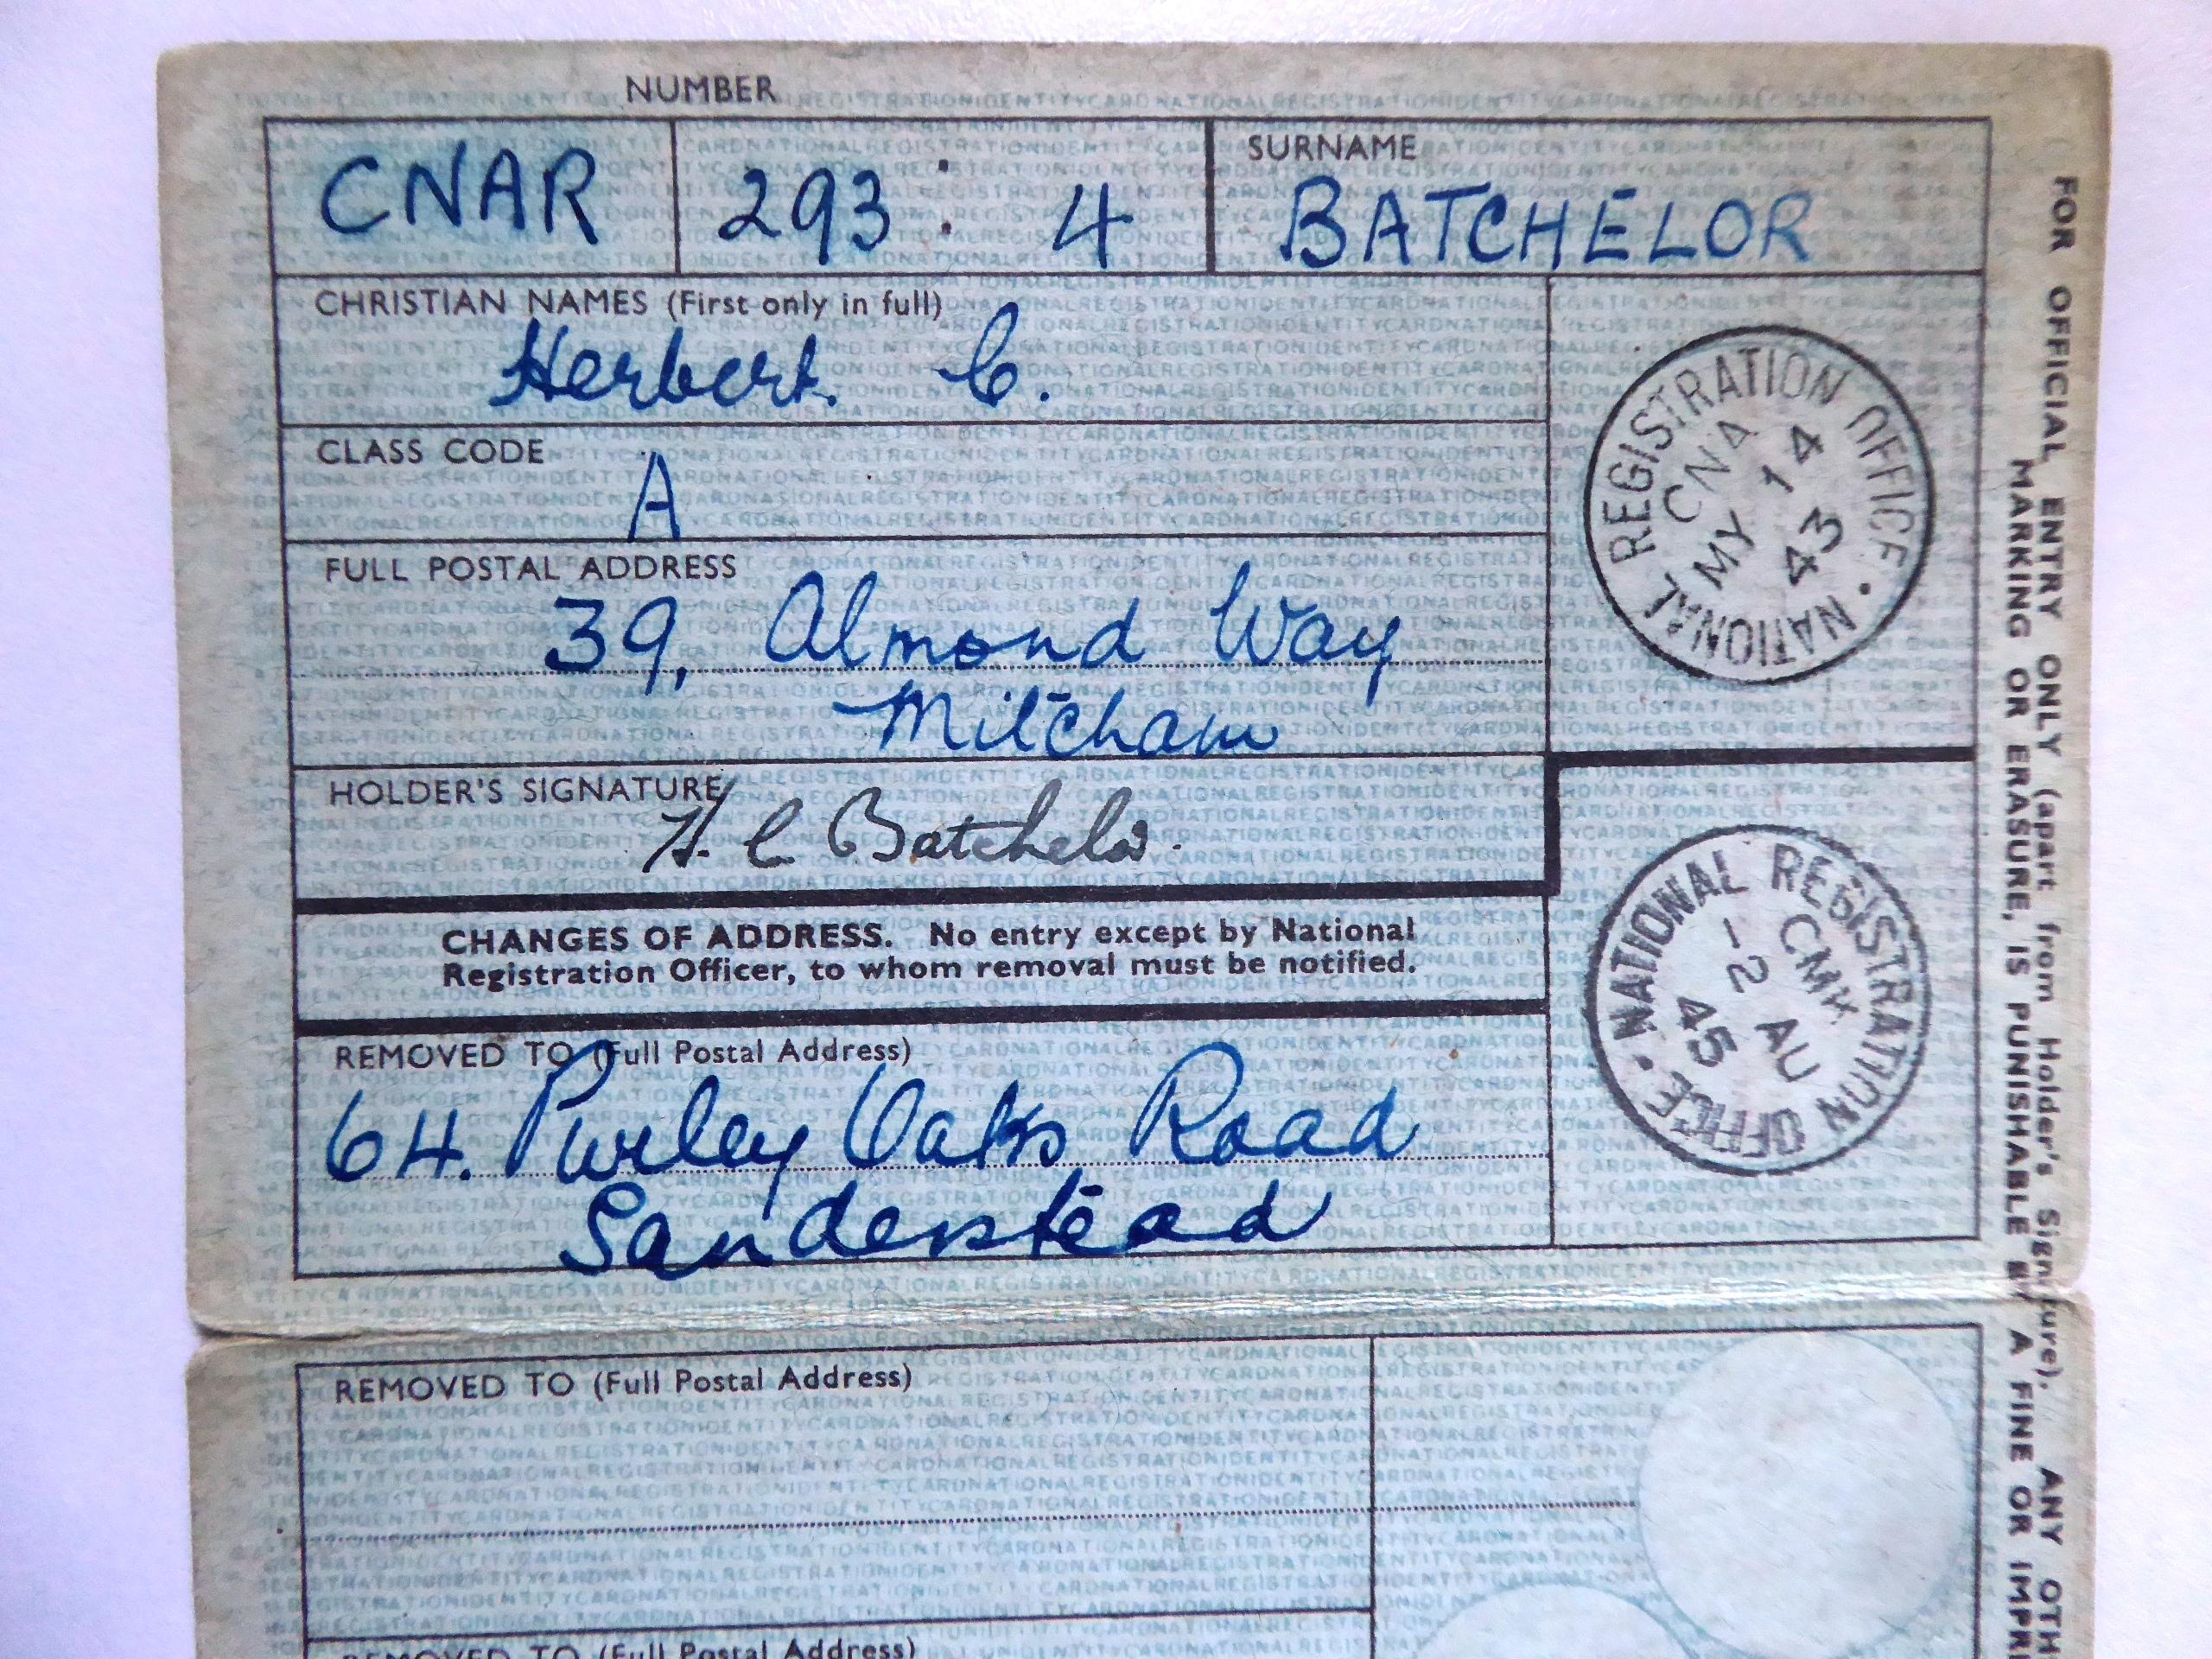 NUMBER
CNAR 293 : 4
SURNAME
BATCHELOR
CHRISTIAN NAMES (First only in full)
Herbert C.
CLASS CODE
A
FULL POSTAL ADDRESS
39, Almond Way
Mitcham
HOLDER'S SIGNATURE
H. C Batchelor.
NATIONAL REGISTRATION OFFICE
CNA
MY 14
43
CHANGES OF ADDRESS. No entry except by National
Registration Officer, to whom removal must be notified.
REMOVED TO (Full Postal Address)
64. Purley Oaks Road
Sanderstead
NATIONAL REGISTRATION OFFICE
-2 AU
45
REMOVED TO (Full Postal Address)
REMOVED TO (Full Postal Address)
FOR OFFICIAL ENTRY ONLY (apart from Holder's Signature). ANY OTH
MARKING OR ERASURE, IS PUNISHABLE BY A FINE OR IMPRI